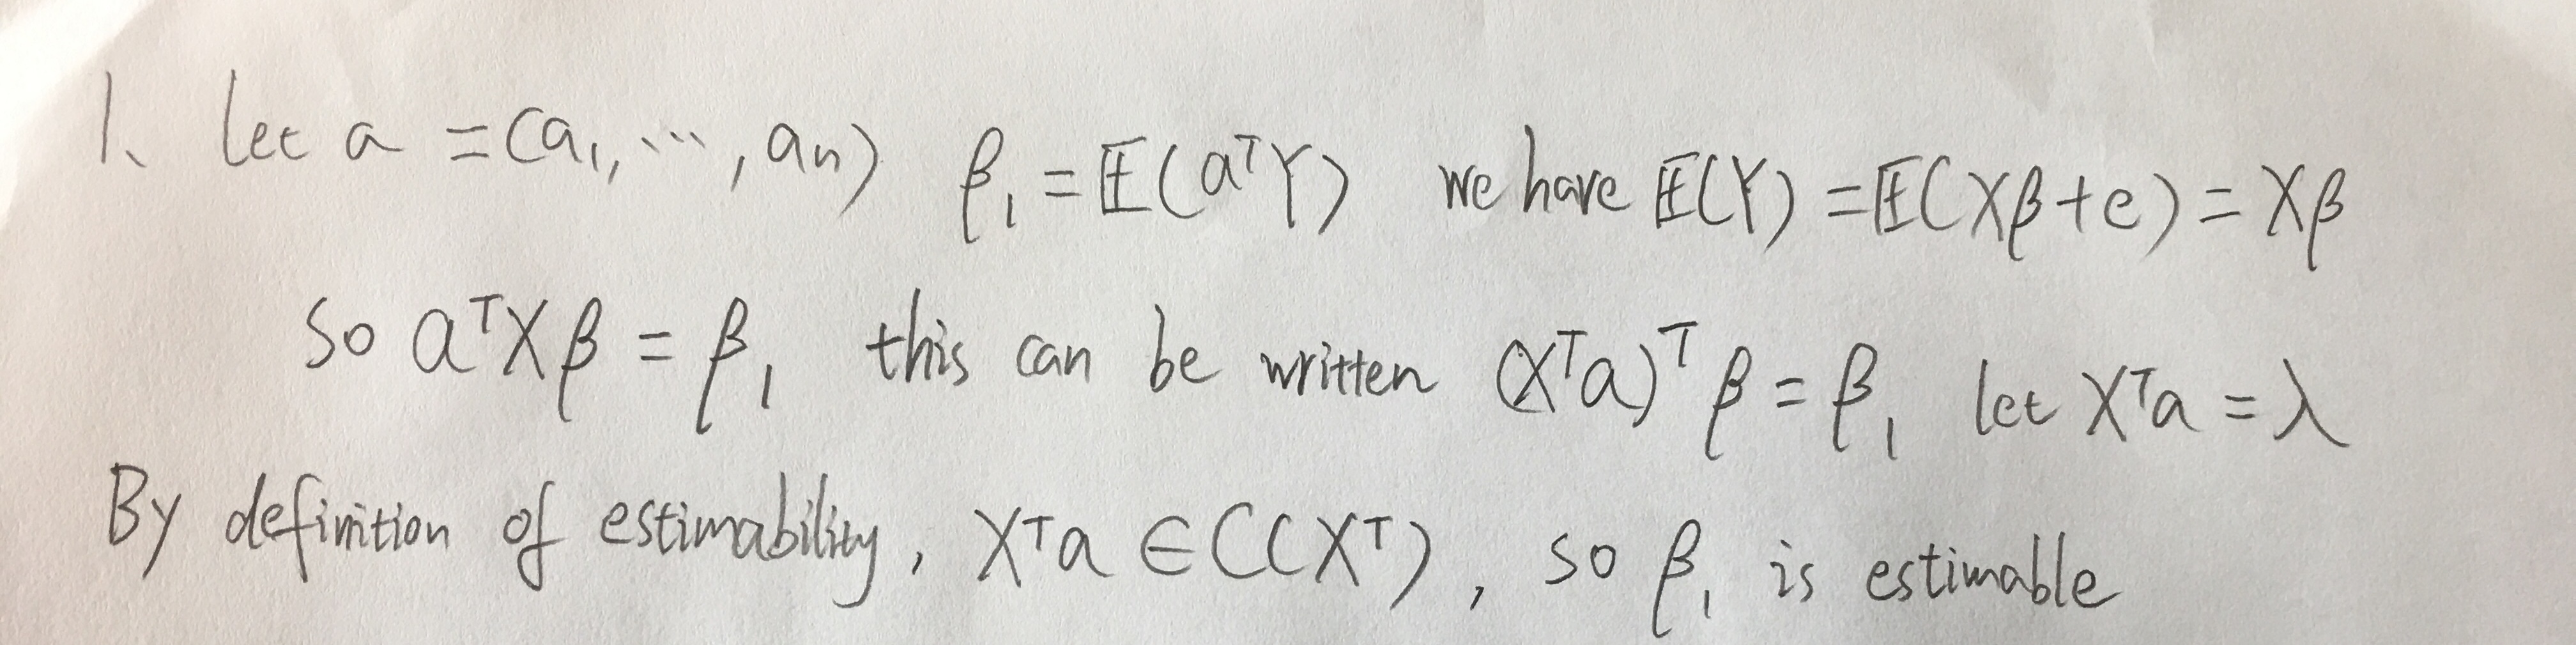 1、 let a = (a₁, ⋯, aₙ) β₁ = 𝔼(aᵀY) we have 𝔼(Y) = 𝔼(Xβ + e) = Xβ
so aᵀXβ = β₁ this can be written (Xᵀa)ᵀβ = β₁ let Xᵀa = λ
By definition of estimability, Xᵀa ∈ C(Xᵀ), so β₁ is estimable